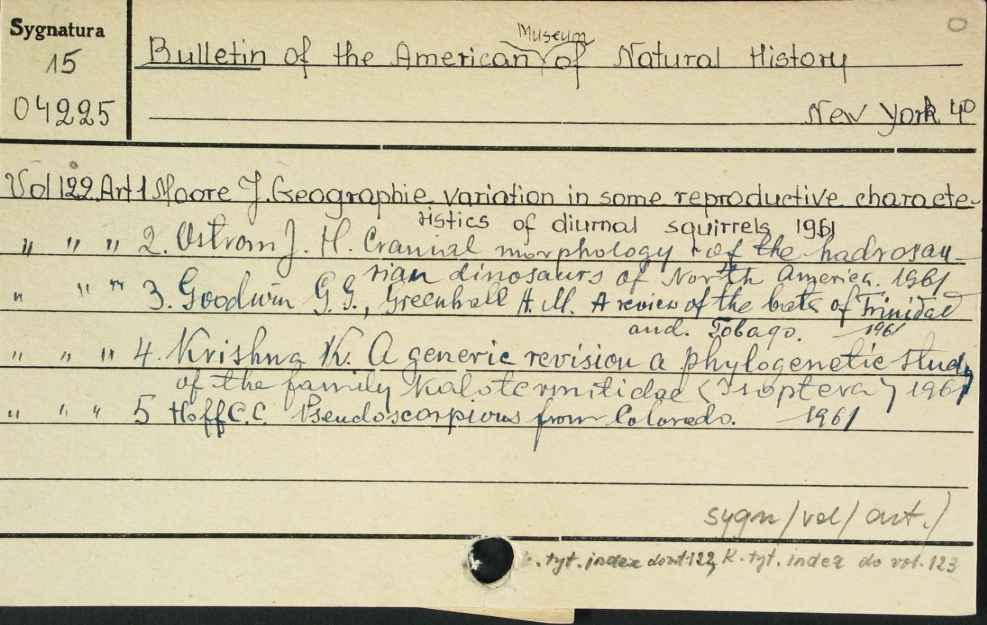 Sygnatura
15
04225
Bulletin of the American Museum of Natural History
New York 4°
Vol 122 Art 1 Moore J. Geographie variation in some reproductive characte-
ristics of diurnal squirrels 1961
" " " 2. Ostrom J. H. Cranial morphology of the hadrosau-
rian dinosaurs of North America. 1961
" " " 3. Goodwin G.G., Greenhall A. M. A review of the bats of Trinidad
and. Tobago. 1961
" " " 4. Krishna K. A generic revision a phylogenetic study
of the family Kalotermitidae (Isoptera) 1961
" " " 5 Hoff C.C. Pseudoscorpions from Colorado. 1961
sygn/vol/art./
k. tyt. index do vol. 122, K. tyt. index do vol. 123